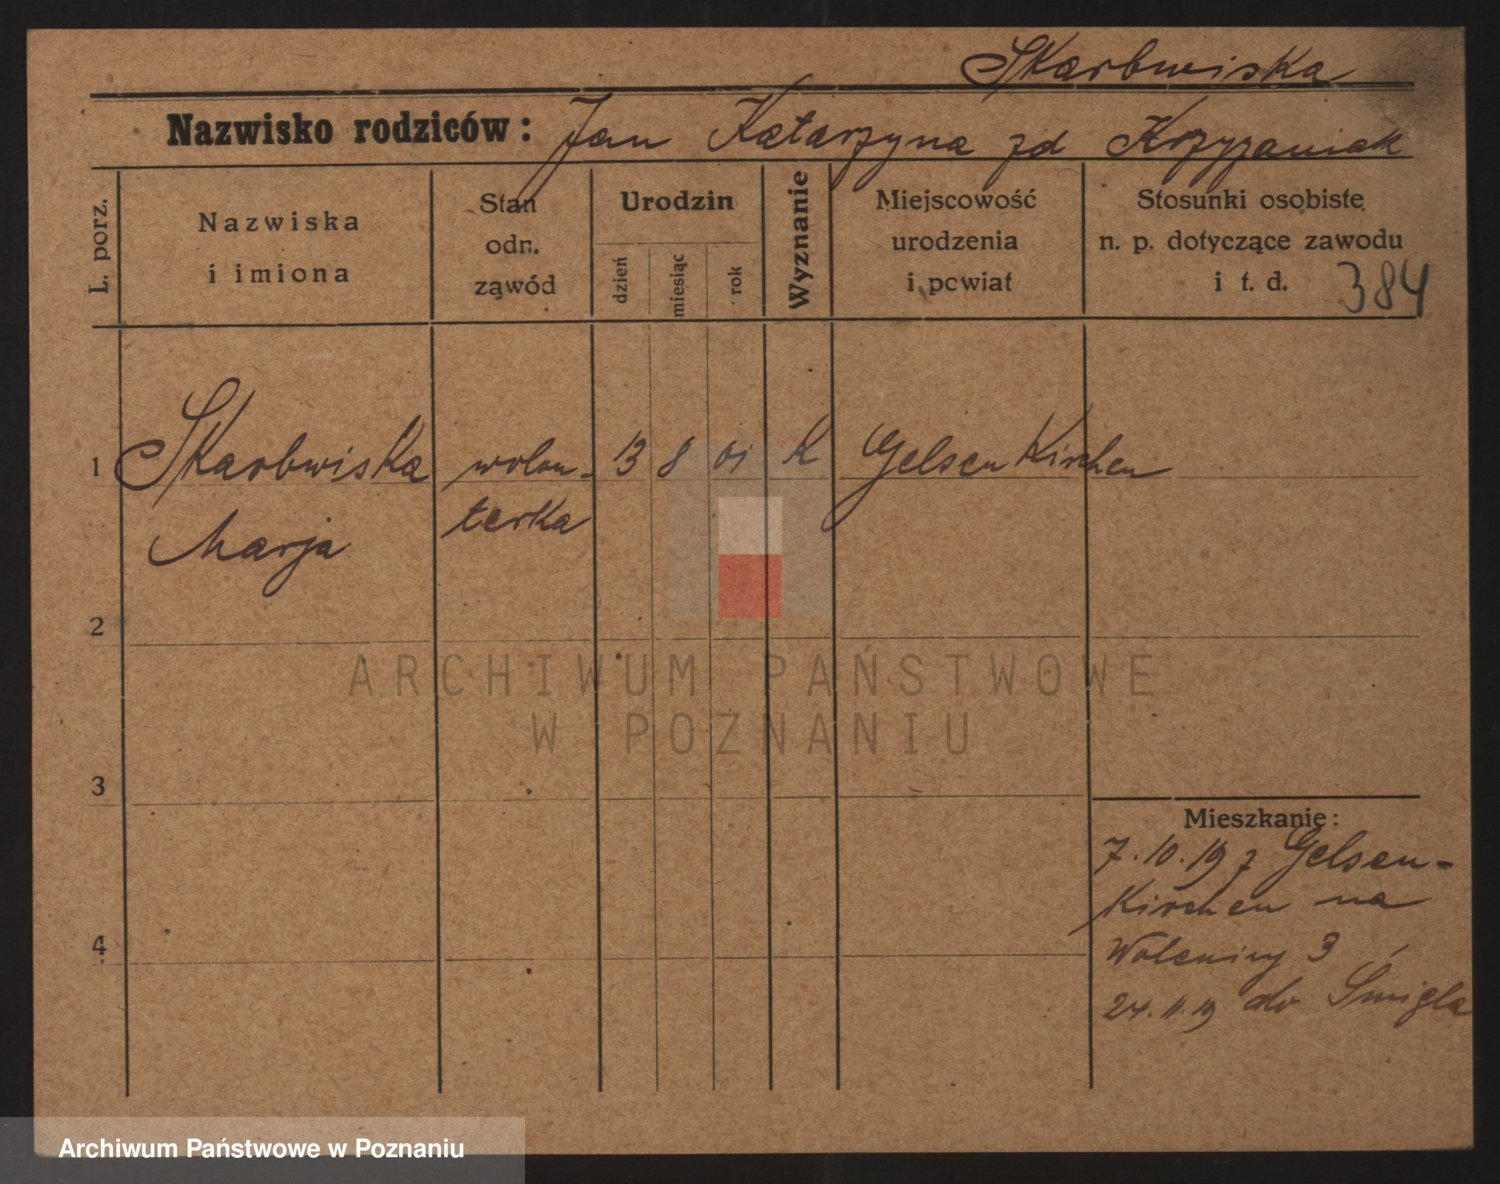 Skarbwiska
Nazwisko rodziców: Jan Katarzyna zd Krzyżaniak
L. porz.
Nazwiska
i imiona
Stan
odn.
ząwód
Urodzin
dzień
miesiąc
rok
Wyznanie
Miejscowość
urodzenia
i powiat
Stosunki osobiste
n. p. dotyczące zawodu
i t. d.
384
1 Skarbwiska wolon- 13 8 01 K Gelsenkirchen
Marja terka
2
ARCHIWUM PAŃSTWOWE
W POZNANIU
3
Mieszkanie:
7.10.19 z Gelsen-
kirchen na
4
3
24.11.19 do Śmigla
Archiwum Państwowe w Poznaniu